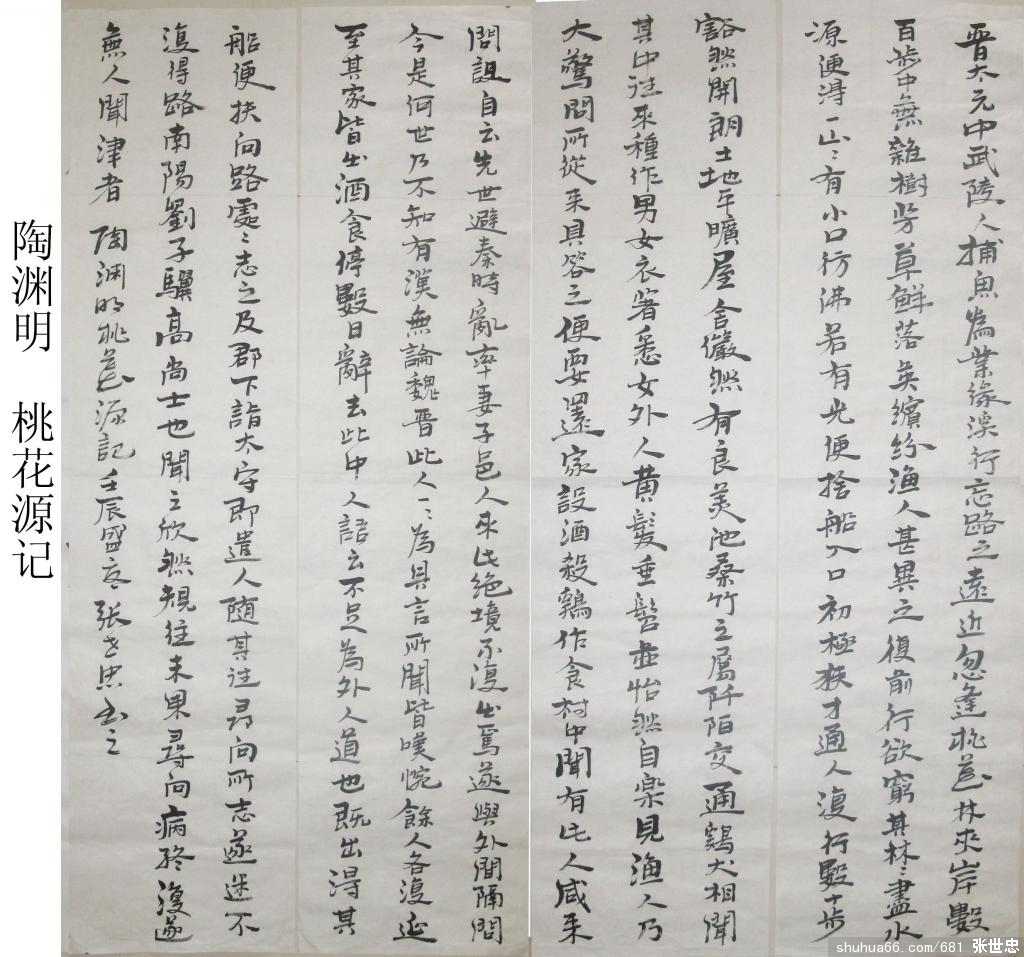 晋太元中武陵人捕魚為業缘溪行忘路之遠近忽逢桃花林夾岸數
百步中無雜樹芳草鮮落英繽紛漁人甚異之復前行欲窮其林〻盡水
源便得一山〻有小口彷彿若有光便捨船入口初極狹才通人復行數十步
豁然開朗土地平曠屋舍儼然有良美池桑竹之屬阡陌交通鷄犬相聞
其中往來種作男女衣著悉女外人黄髮垂髫並怡然自樂見漁人乃
大驚問所從來具答之便要還家設酒殺鷄作食村中聞有此人咸来
問訊自云先世避秦時亂率妻子邑人來此絶境不復出焉遂與外間隔問
今是何世乃不知有漢無論魏晋此人一〻為具言所聞皆嘆惋餘人各復延
至其家皆出酒食停數日辭去此中人語云不足為外人道也既出得其
船便扶向路處〻志之及郡下詣太守即遣人隨其往尋向所志遂迷不
復得路南陽劉子驥高尚士也聞之欣然規往未果尋向病終復遂
無人聞津者 陶渊明桃花源記壬辰盛夏張世忠书之
陶渊明 桃花源记
shuhua66.com/681 张世忠